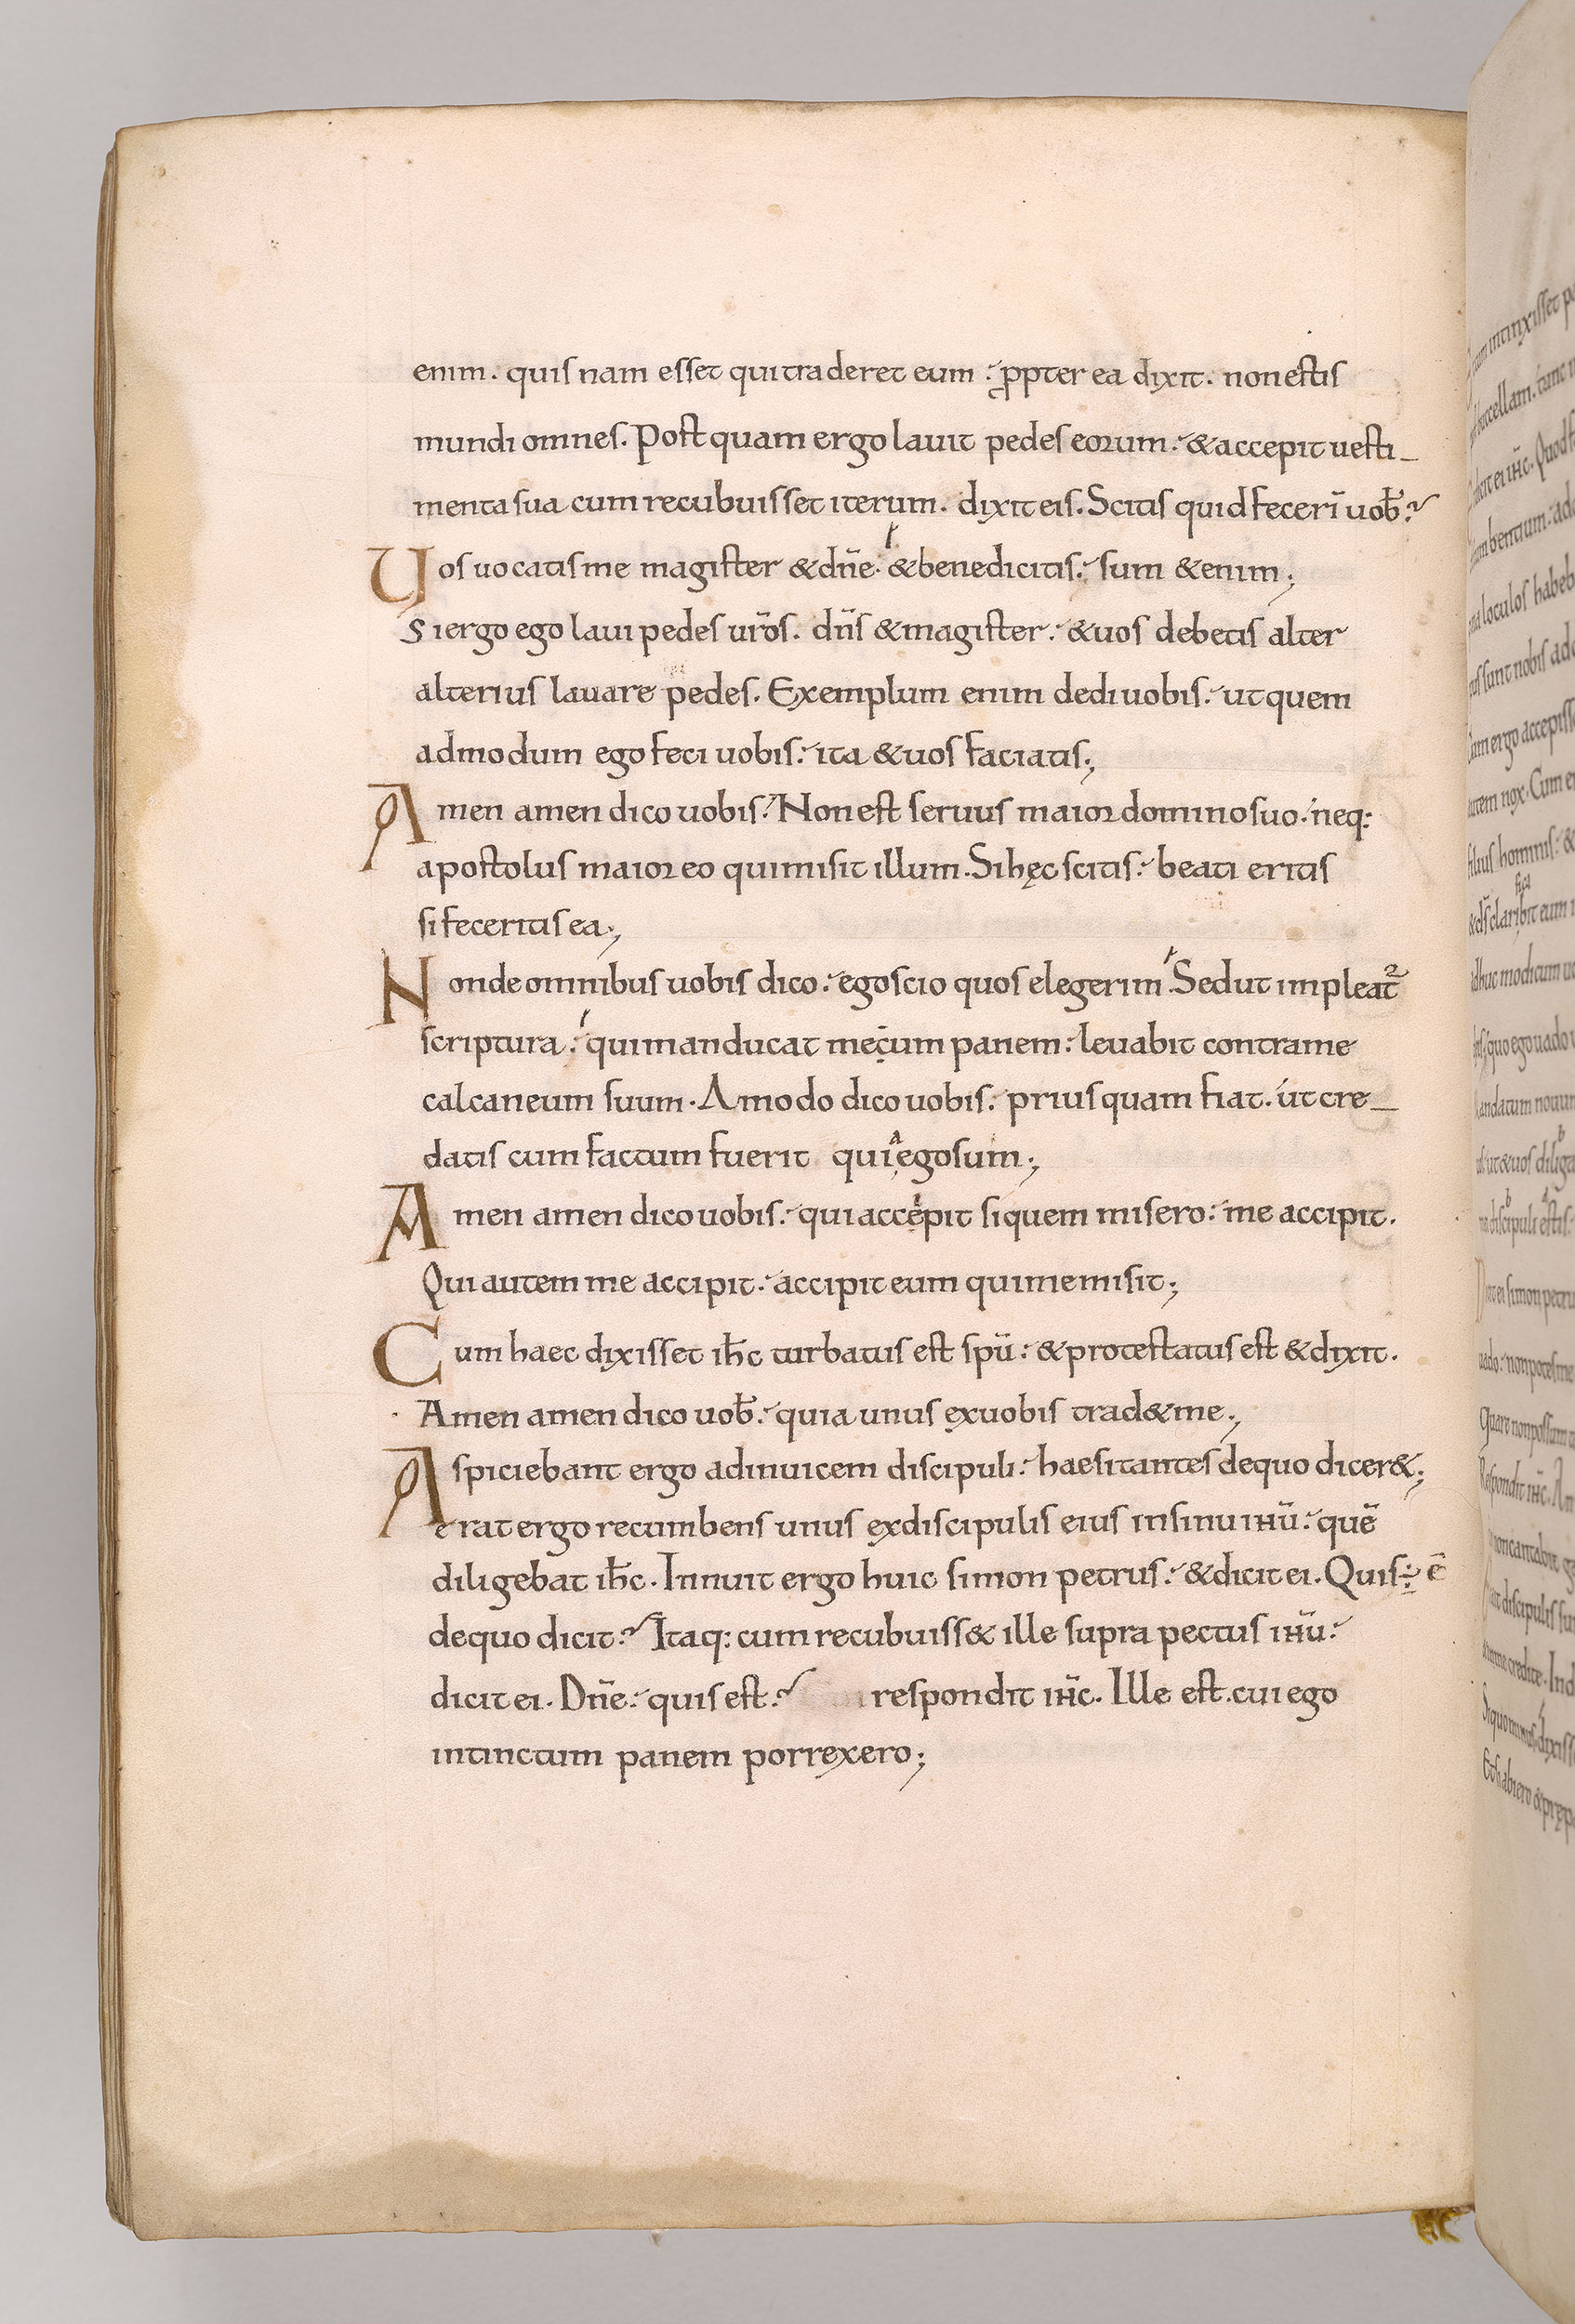 enim. quis nam esset qui traderet eum: ꝓpter ea dixit. non estis
mundi omnes. Postquam ergo lauit pedes eorum: & accepit uesti_
menta sua cum recubuisset iterum. dixit eis. Scitis quid fecerī uob̄?
Uos uocatis me magister & dn̄e. & bene dicitis: sum & enim;
Si ergo ego laui pedes ur̄os. dn̄s & magister: & uos debetis alter
alterius lauare pedes. Exemplum enim dedi uobis: ut quem
admodum ego feci uobis: ita & uos faciatis;
Amen amen dico uobis: Non est seruus maior domino suo: neq:
apostolus maior eo qui misit illum. Si hęc scitis: beati eritis
si feceritis ea;
Non de omnibus uobis dico: ego scio quos elegerim. Sed ut impleat᷑
scriptura: qui manducat mecum panem: leuabit contra me
calcaneum suum. Amodo dico uobis: prius quam fiat. ut cre_
datis cum factum fuerit quia ego sum;
Amen amen dico uobis: qui accepit si quem misero: me accipit.
Qui autem me accipit: accipit eum qui me misit;
Cum haec dixisset ih̄c turbatus est spū: & protestatus est & dixit.
Amen amen dico uob̄: quia unus ex uobis trad& me;
Aspiciebant ergo adinuicem discipuli: haesitantes de quo dicer&;
erat ergo recumbens unus ex discipulis eius in sinu ihū: quē
diligebat ih̄c. Innuit ergo huic simon petrus: & dicit ei. Quis ÷ ē
de quo dicit? Itaq: cum recubuiss& ille supra pectus ihū:
dicit ei. Dn̄e: quis est? respondit ih̄c. Ille est. cui ego
intinctum panem porrexero;